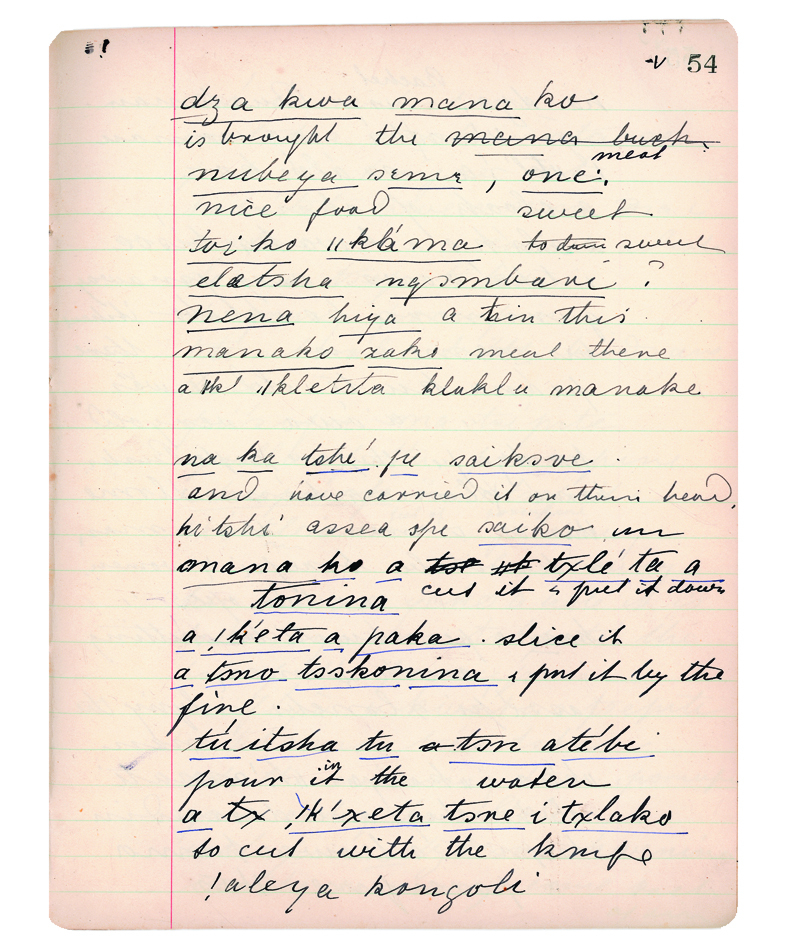 54
dza kwa mana ko
is brought the mana buck.
meat
nubeya seme, one.
nice food sweet
toi ko "kláma sweet
elatsha ngsmbavi ?
nena hiya a this
manako xako meal there
"kletsta klaklu manake
na ka tshé pe saiksve.
and have carried it on their head,
hitshi assea spe saiko un
mana ko a txlé ta a
cut it & put it down
tonina
a !kéta a paka. slice it
a tsno tsskonina & put it by the
fire.
túitsha tu a tsn atébi
in
pour it the water
a tx !k'xeta tsne i txlako
to cut with the knife
!aleya kongoli